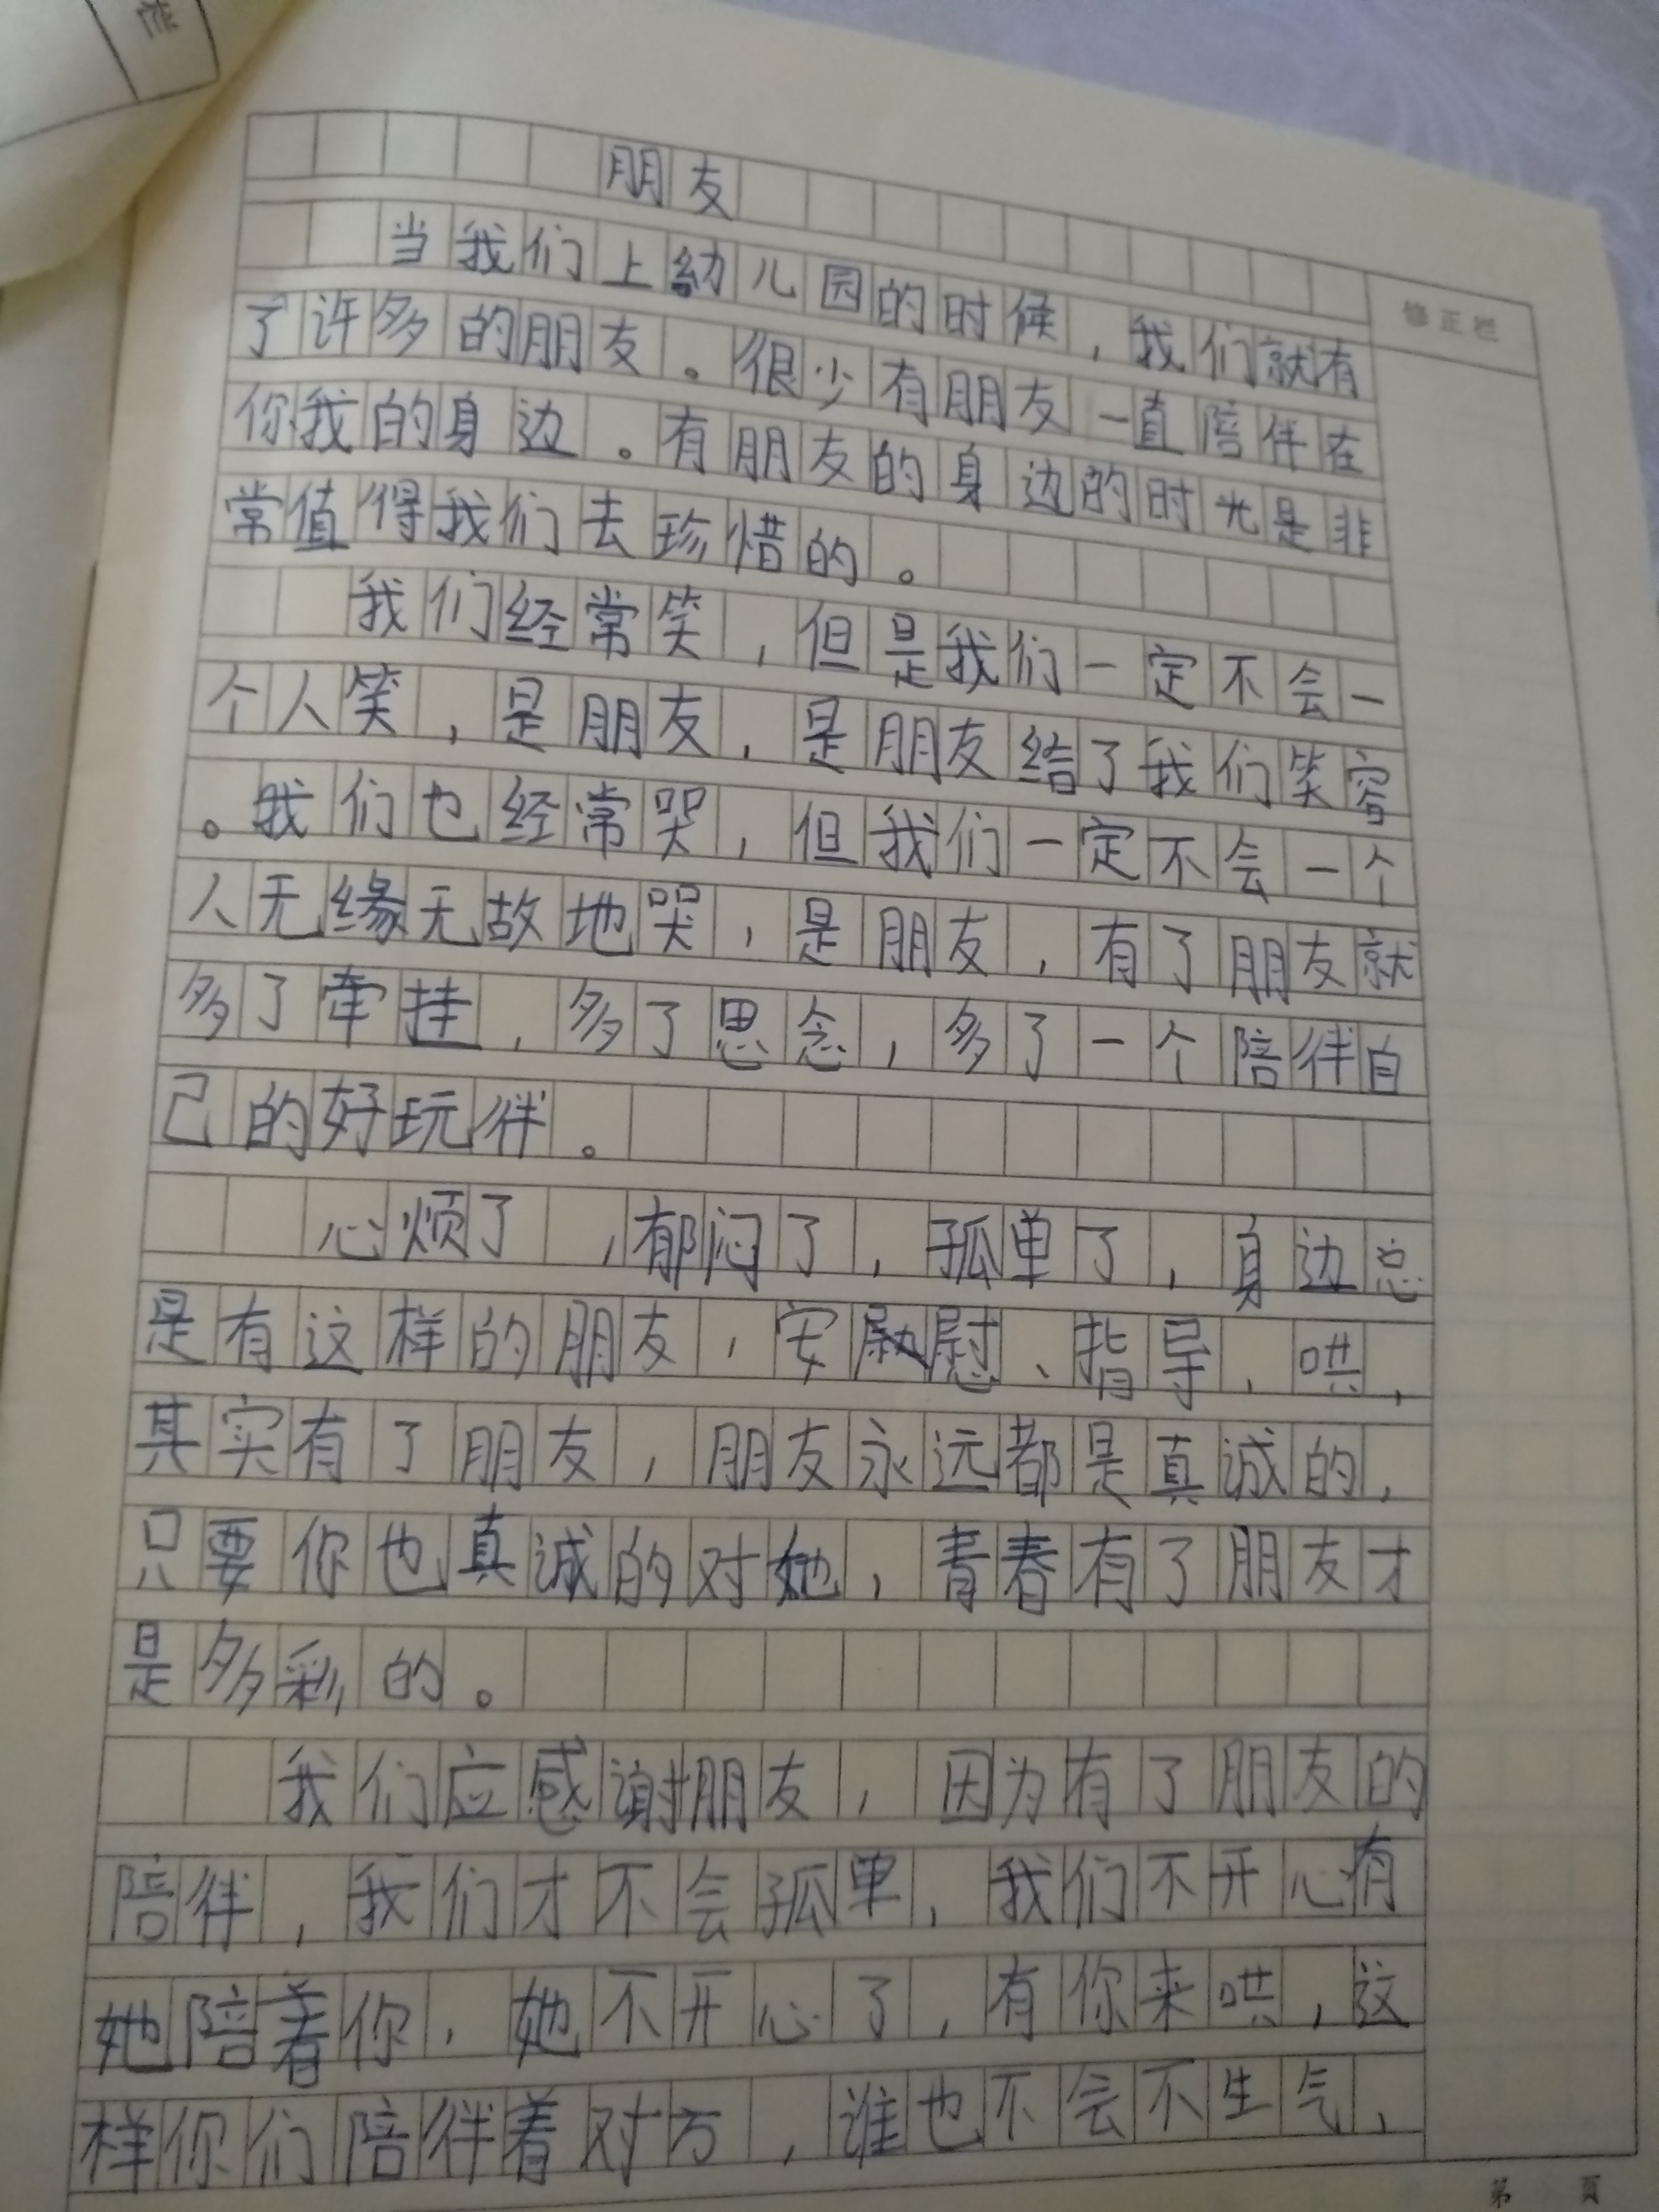 朋友
当我们上幼儿园的时候，我们就有
修正栏
了许多的朋友。很少有朋友一直陪伴在
你我的身边。有朋友的身边的时光是非
常值得我们去珍惜的。
我们经常笑，但是我们一定不会一
个人笑，是朋友，是朋友给了我们笑容
。我们也经常哭，但我们一定不会一个
人无缘无故地哭，是朋友，有了朋友就
多了牵挂，多了思念，多了一个陪伴自
己的好玩伴。
心烦了，郁闷了，孤单了，身边总
是有这样的朋友，安慰、指导、哄，
其实有了朋友，朋友永远都是真诚的，
只要你也真诚的对她，青春有了朋友才
是多彩的。
我们应感谢朋友，因为有了朋友的
陪伴，我们才不会孤单，我们不开心有
她陪着你，她不开心了，有你来哄，这
样你们陪伴着对方，谁也不会不生气，
第 页